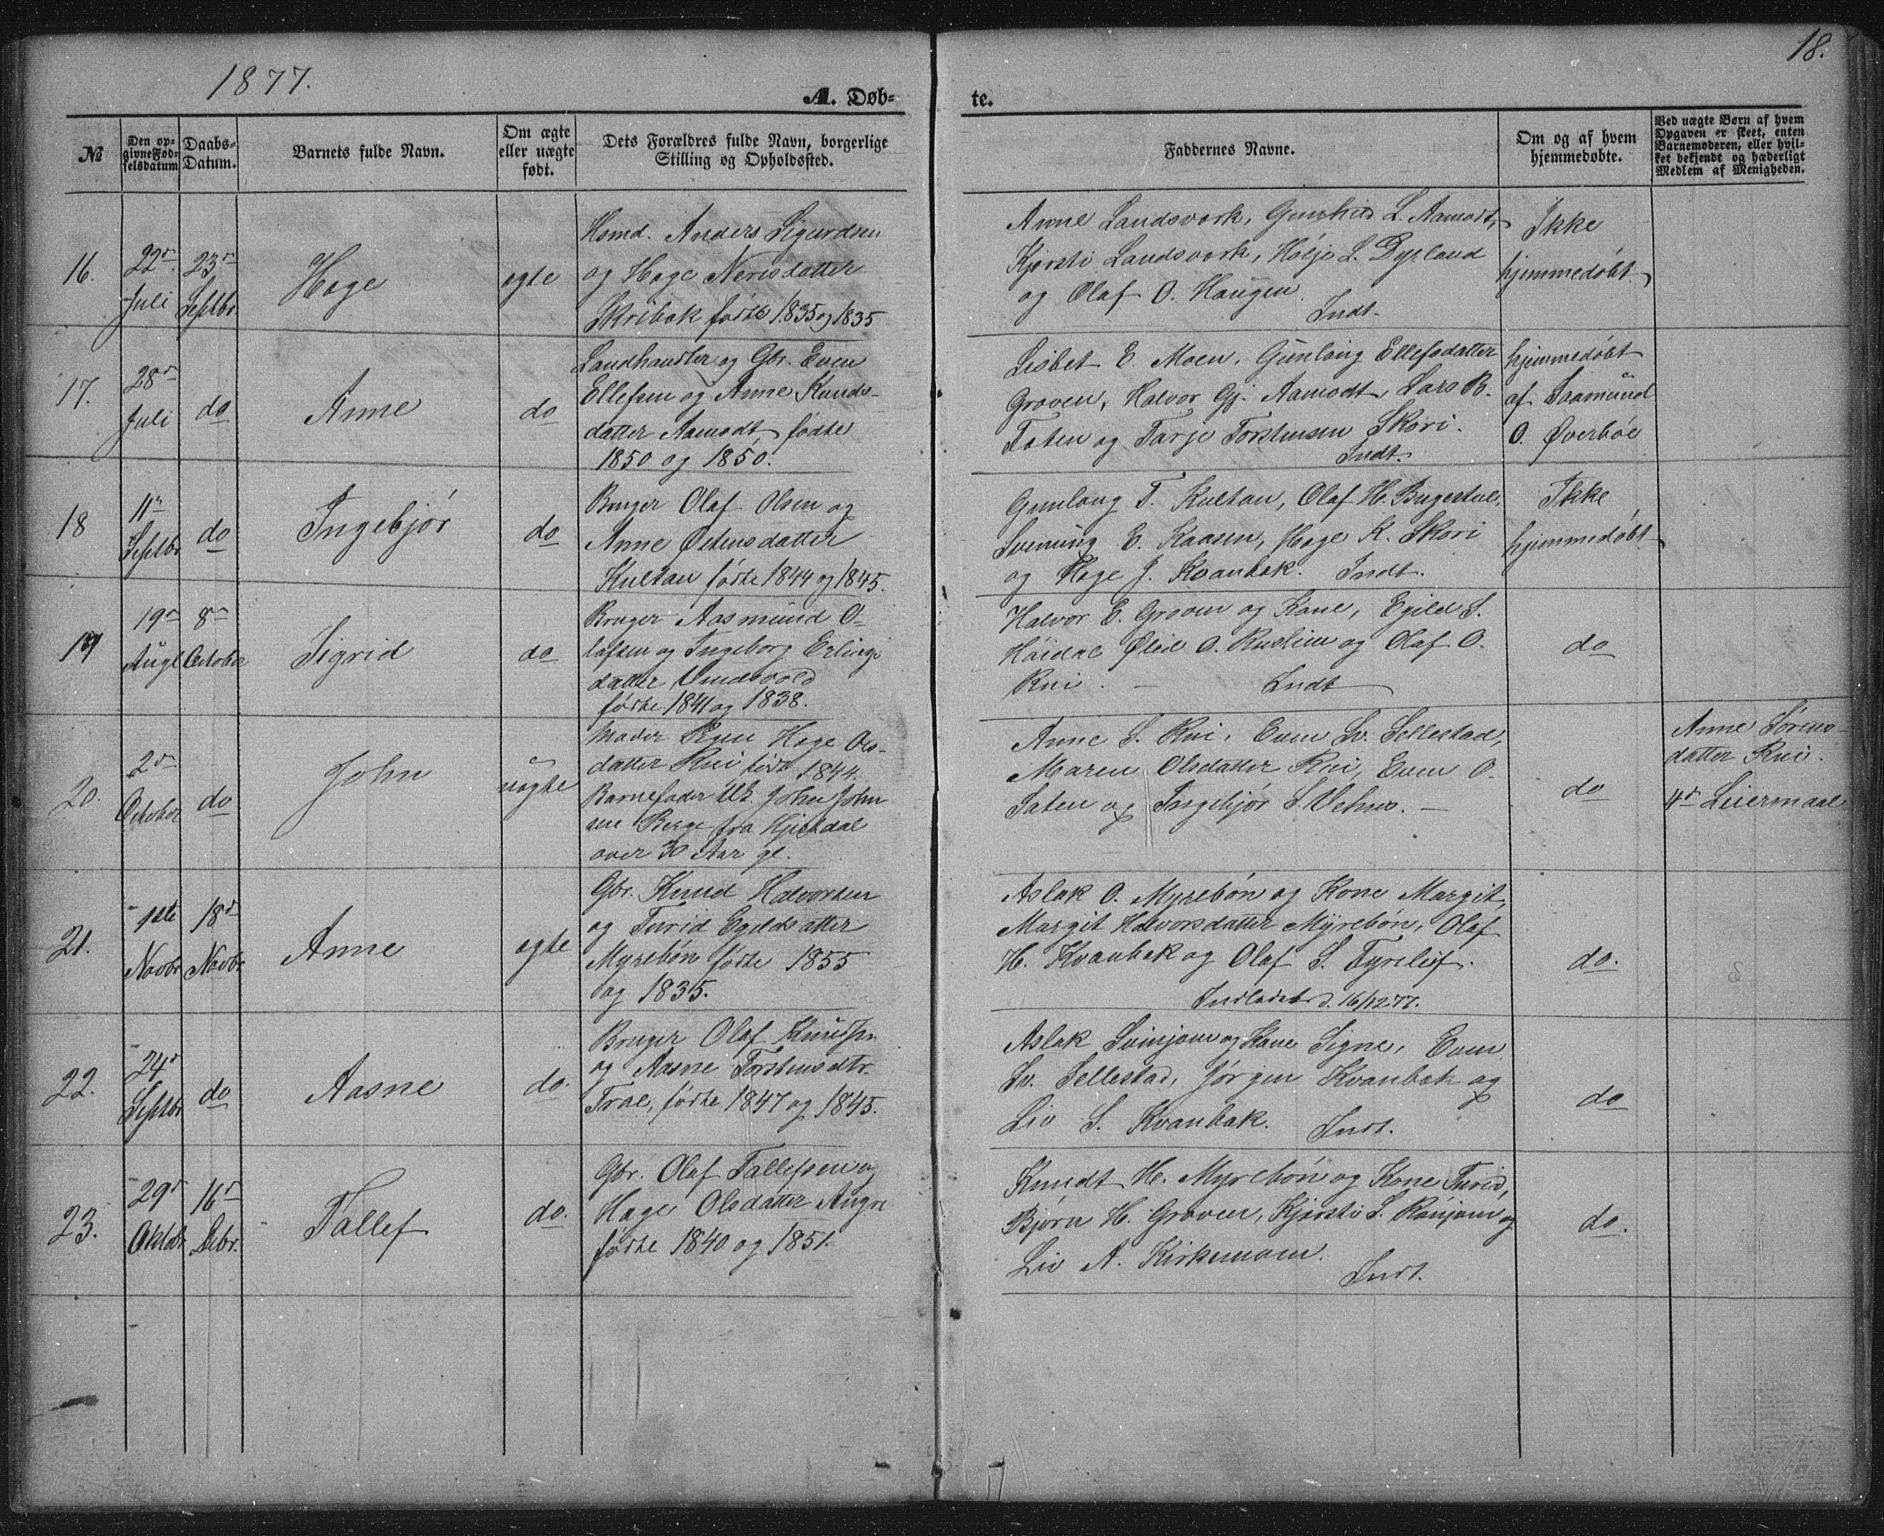 1877.
18.
A. Døb-
te.
№
Den op-
givne Fød-
selsdatum
Daabs-
Datum.
Barnets fulde Navn.
Om ægte
eller uægte
født.
Dets Forældres fulde Navn, borgerlige
Stilling og Opholdssted.
Faddernes Navne.
Om og af hvem
hjemmedøbte.
Ved uægte Børn af hvem
Opgaven er skeet, enten
Barnemoderen, eller hvil-
ket bekjendt og hæderligt
Medlem af Menigheden.
16.
22de
Juli
23de
Septbr
Hage
egte
Hsmd. Anders Sigurdsen
og Hage Nerisdatter
Skribak fødte 1835 og 1835
Anne Landsverk, Gunhild L. Aamodt,
Kjersti Landsverk, Høije L. Dyrland
og Olaf O. Haugen.
Indt.
Ikke
hjemmedøbt
17.
28de
Juli
do
Anne
do
Landhandler og Gbr. Even
Ellefsen og Anne Knuds-
datter Aamodt fødte
1850 og 1850.
Lisbet E. Moen, Gunlaug Ellefsdatter
Groven, Halvor Gj. Aamodt, Lars B.
Taten og Tarje Torstensen Skori.
Indt.
hjemmedøbt
af Saamund
O. Øverbøe
18
11te
Septbr
do
Ingebjør
do
Bruger Olaf Olsen og
Anne Østensdatter
Kultan fødte 1844 og 1845.
Gunlaug T. Kultan, Olaf H. Bugestul,
Svenung E. Kaasen, Hage K. Skori
og Hage J. Kvanbek. Indt.
Ikke
hjemmedøbt
19
19de
Augt
8de
October
Sigrid
do
Bruger Aasmund O-
lafsen og Ingeborg Erlings
datter Vindsvold
fødte 1841 og 1838.
Halvor E. Groven og Kone, Egild S.
Høidal O. Ruslien og Olaf O.
Rui. Indt
do
20.
2de
October
do
John
uægte
Moder Pigen Hage Ols-
datter Rui født 1844.
Barnefader Uk. John John
sen Berge fra Hjertdal
over 30 Aar gl.
Anne S. Rui, Even Sv. Sellestad,
Maren Olsdatter Rui, Even O.
Taten og Ingebjør S. Vehus.
do
Anne Sørens-
datter Rui.
4de Leiermaal
21.
1ste
Novbr
18de
Novbr
Anne
egte
Gbr. Knud Halvorsen
og Turid Egildsdatter
Myrebøn fødte 1855
og 1835.
Aslak O. Myrebøn og Kone Margit,
Margit Halvorsdatter Myrebøn, Olaf
H. Kvanbek og Olaf S. Tyrelif.
Indladet d. 16/12 77.
do.
22.
24de
Septbr
do
Aasne
do.
Bruger Olaf Knudsen
og Aasne Torstensdtr.
Trae, fødte 1847 og 1845.
Aslak Svinjom og Kone Signe, Even
Sv. Sellestad, Jørgen Kvanbek og
Liv S. Kvanbek. Indt.
do
23.
29de
Oktbr
16de
Debr.
Tallef
do.
Gbr. Olaf Tallefsen og
Hage Olsdatter Augre
fødte 1840 og 1851.
Knudt H. Myrebøn og Kone Turid,
Bjørn H. Groven, Kjersti S. Rønjom og
Liv A. Kirkemoen.
Indt.
do.